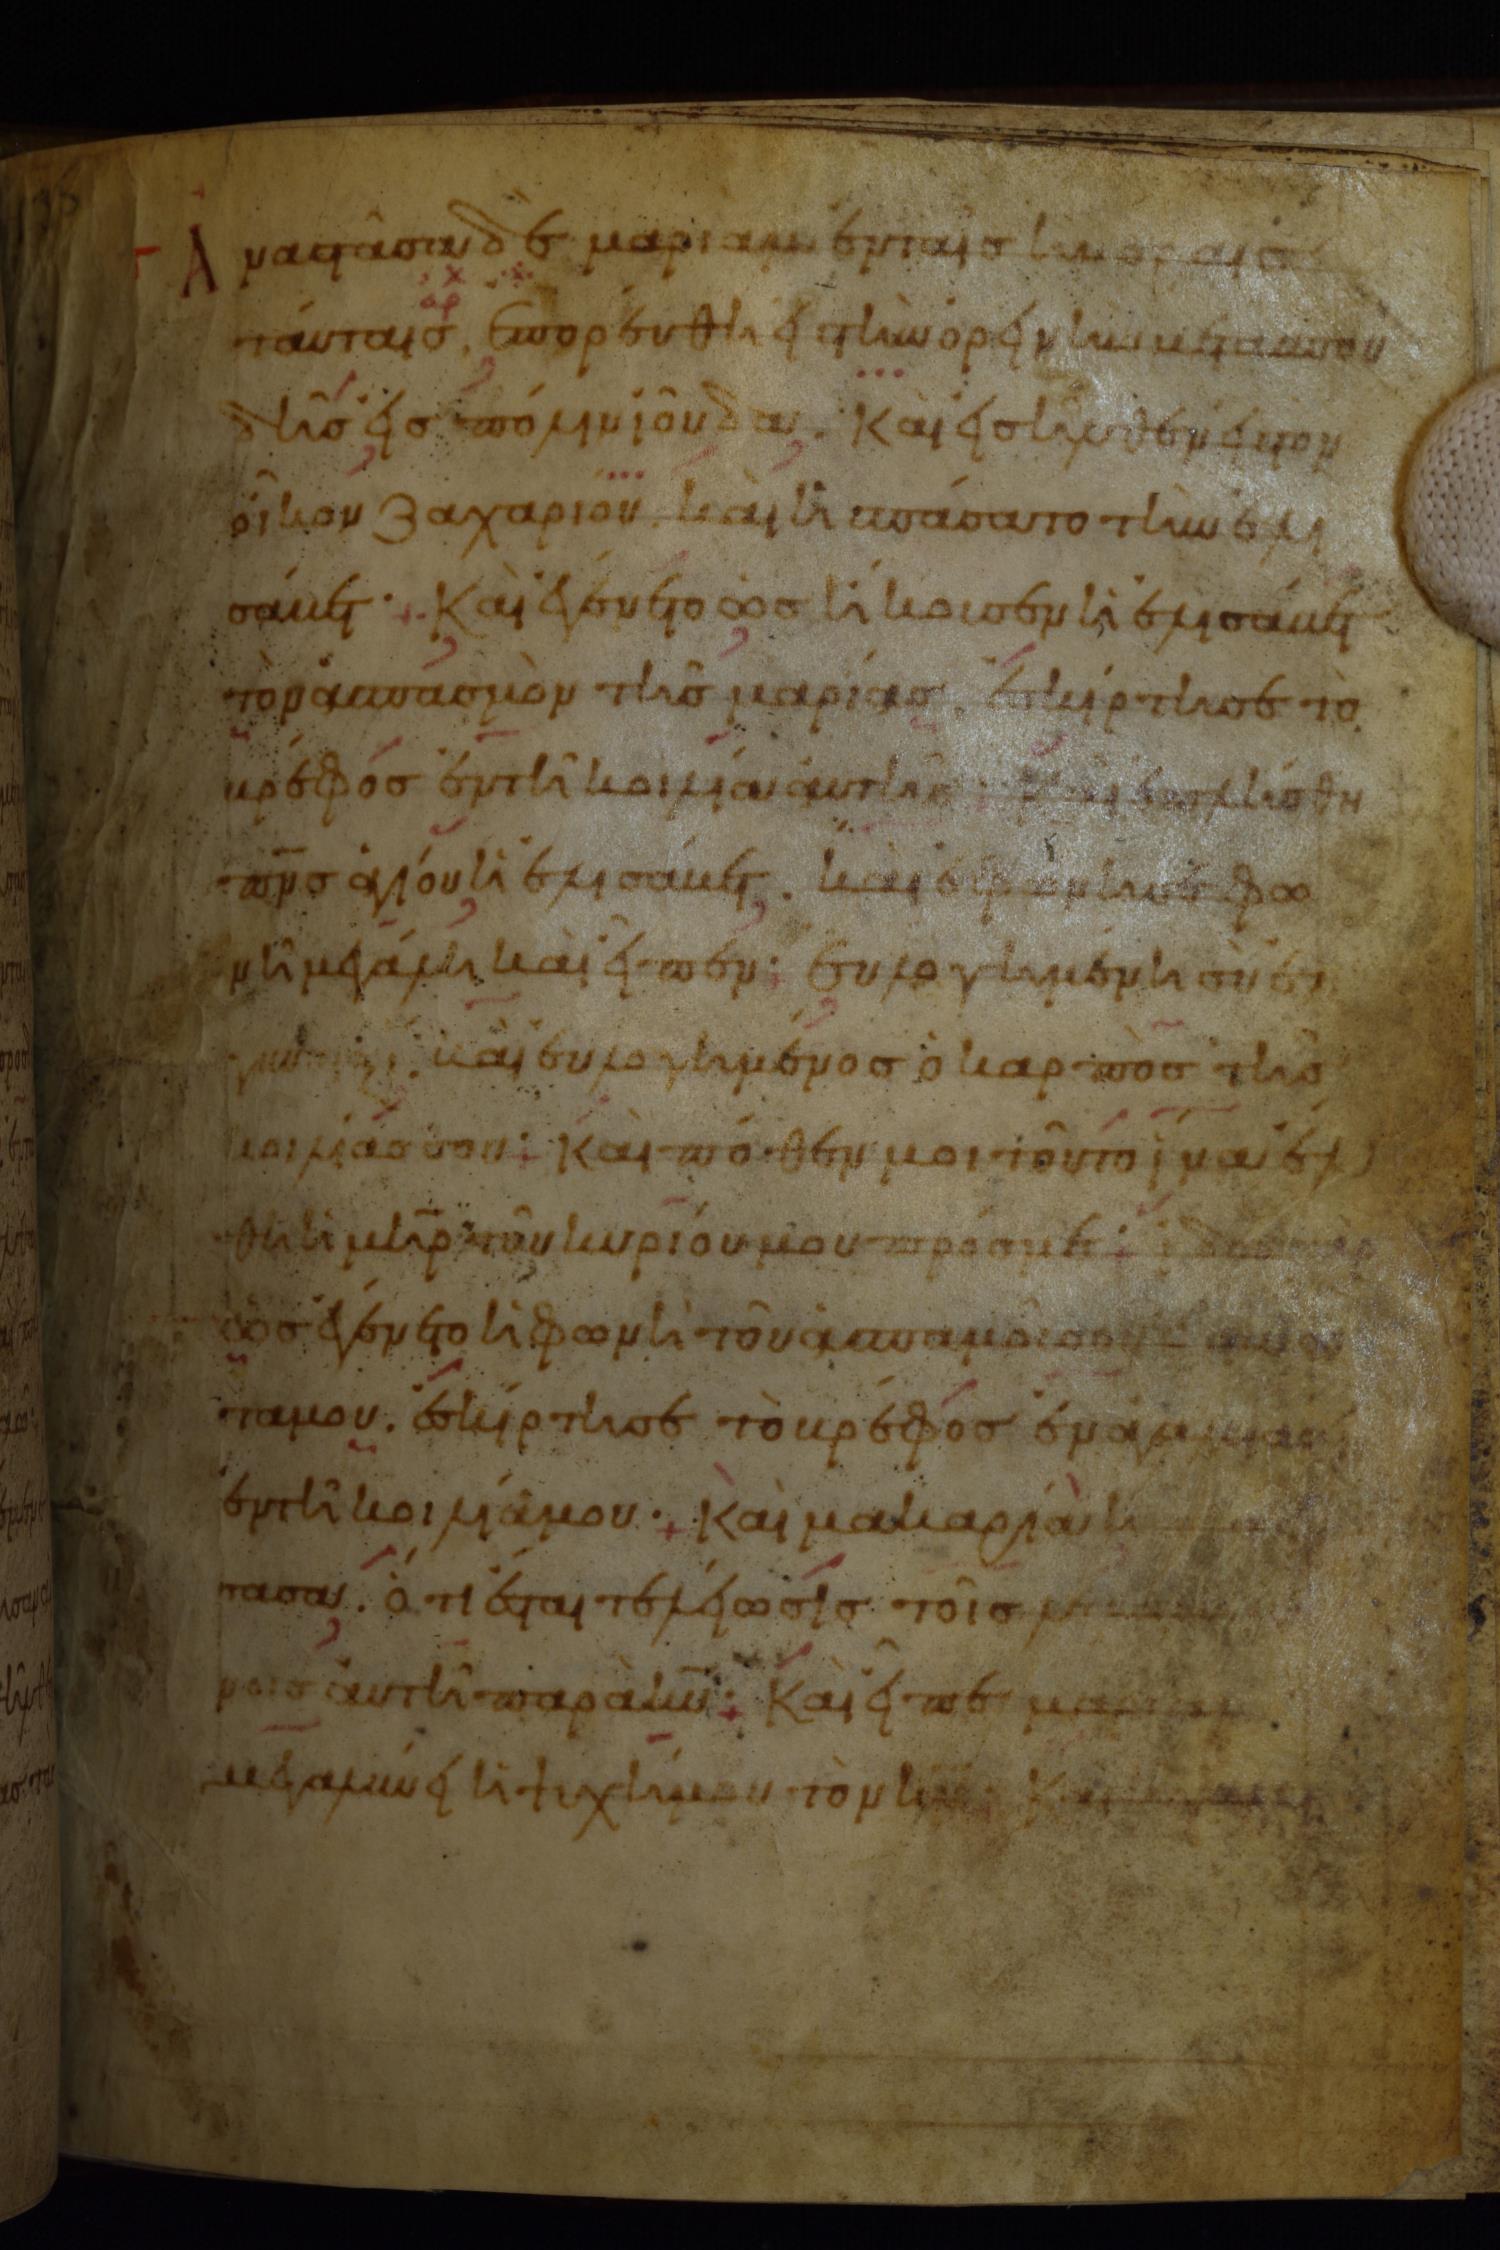 Ἀναστᾶσα δὲ μαριαμ ἐν ταῖς ἡμέραις
ταύταις, ἐπορεύθη εἰς τὴν ὀρεινὴν μετὰ σπου
δῆς εἰς πόλιν ἰούδα. Καὶ εἰσῆλθεν εἰς τὸν
οἶκον Ζαχαρίου. καὶ ἠσπάσατο τὴν ἐλι
σάβετ· Καὶ ἐγένετο ὡς ἤκουσεν ἡ ἐλισάβετ
τὸν ἀσπασμὸν τῆς μαρίας, ἐσκίρτησε τὸ
βρέφος ἐν τῇ κοιλία αὐτῆς· Καὶ ἐπλήσθη
πνς ἁγίου ἡ ἐλισάβετ. καὶ ἀνεφώνησε φω
νῇ μεγάλη καὶ εἶπεν· εὐλογημένη σὺ ἐν
γυναιξὶ. καὶ εὐλογημένος ὁ καρπὸς τῆς
κοιλίας σου· Καὶ πόθεν μοι τοῦτο ἵνα ἔλ
θη ἡ μηρ τοῦ κυρίου μου πρός με· ἰδοὺ γὰρ
ὡς ἐγένετο ἡ φωνὴ τοῦ ἀσπασμοῦ σου εἰς τὰ ὦ
τα μου. ἐσκίρτησε τὸ βρέφος ἐν ἀγαλλιάσει
ἐν τῇ κοιλία μου· Καὶ μακαρία ἡ
τασα. ὅτι ἔσται τελείωσις τοῖς λελαλημέ
νοις αὐτῇ παρὰ κυ· Καὶ εἶπε μαριαμ
μεγαλύνει ἡ ψυχή μου τὸν κν· Καὶ